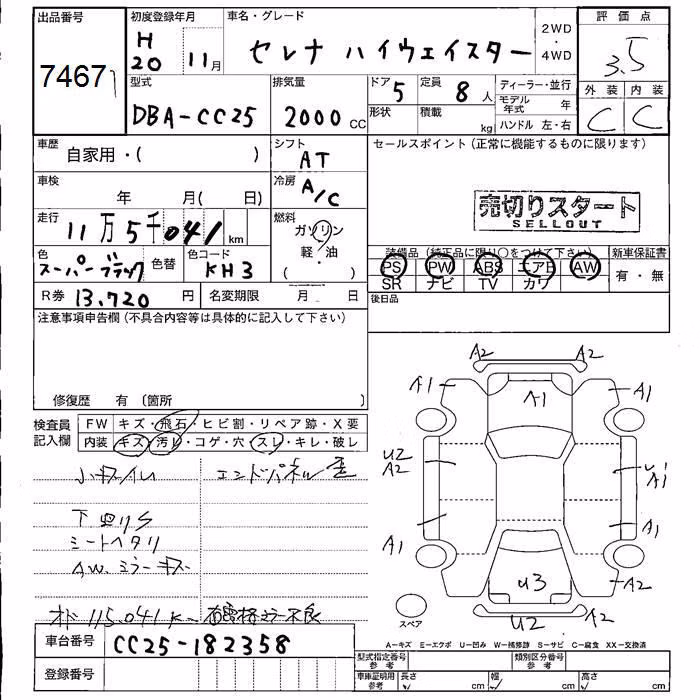 出品番号
7467
初度登録年月
H
20 11月
車名・グレード
セレナ ハイウェイスター
2WD
・
4WD
評価点
3.5
外装 内装
C C
型式
DBA-CC25
排気量
2000 CC
ドア 5
形状
定員 8 人
積載 kg
ディーラー・並行
モデル年式 年
ハンドル 左・右
車歴
自家用・( )
シフト
AT
セールスポイント(正常に機能するものに限ります)
車検
年 月( 日)
冷房
A/C
売切りスタート
SELLOUT
走行
11万5千041 km
燃料
ガソリン
軽・油
( )
色
スーパーブラック
色替
色コード
KH3
装備品(純正品に限り○をつけて下さい)
PS PW ABS エアB AW
SR ナビ TV カワ
新車保証書
有・無
R券 13,720 円
名変期限 月 日
後日品
注意事項申告欄(不具合内容等は具体的に記入して下さい)
修復歴 有 (箇所 )
検査員
記入欄
FW キズ・飛石・ヒビ割・リペア跡・X要
内装 キズ・汚レ・コゲ・穴・スレ・キレ・破レ
小キズイレ
エンドパネル歪
下回りS
シートヘタリ
AW.ミラーキズ
オド 115,041K
車台番号 CC25-182358
登録番号
A2 A2
A1 A1 A1
U2
A2
A1
A1 A1
U3 A2
U2 A2
スペア
A-キズ E-エクボ U-凹み W-補修跡 S-サビ C-腐食 XX-交換済
型式指定番号
参考
類別区分番号
参考
車庫証明用
参考
長さ cm
幅 cm
高さ cm